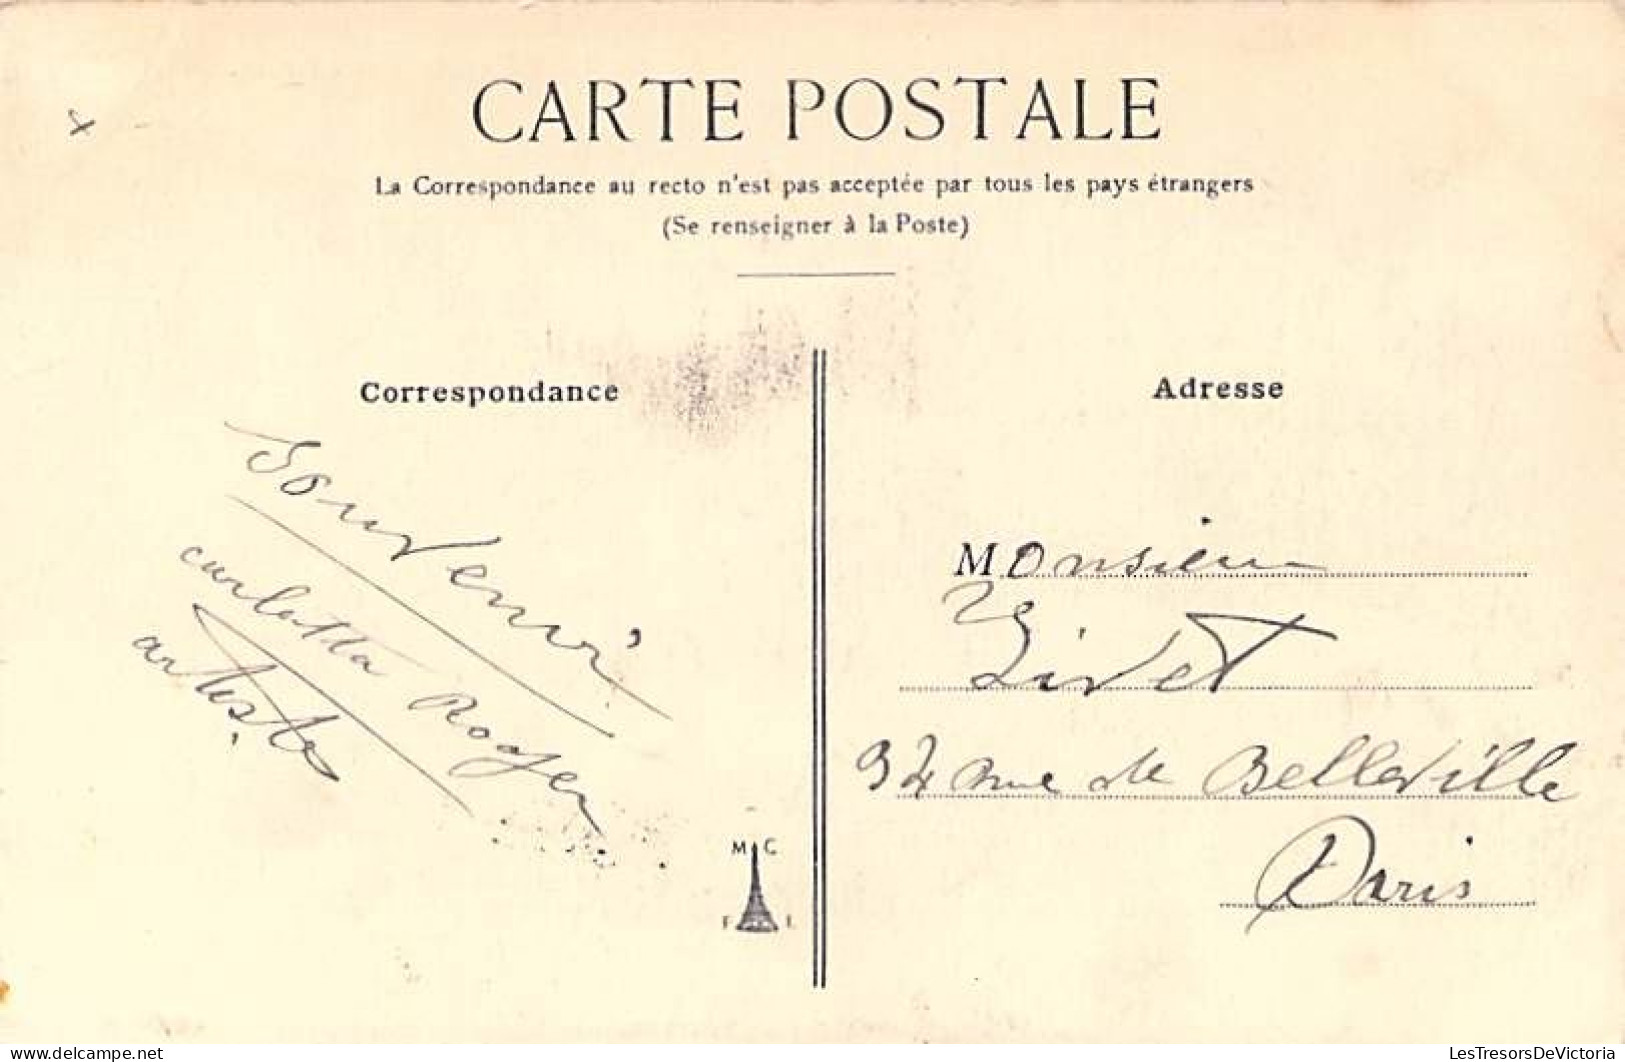 CARTE POSTALE
La Correspondance au recto n'est pas acceptée par tous les pays étrangers
(Se renseigner à la Poste)
Correspondance
Souvenir
Roger
artiste
M C
F I
Adresse
Monsieur
Livet
32 rue de Belleville
Paris
delcampe.net
LesTresorsDeVictoria